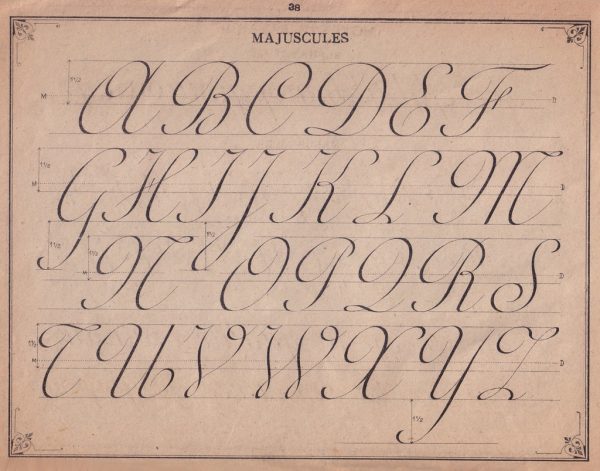 38
MAJUSCULES
1½ M A B C D E F D
1½ M G H I J K L M D
1½ 1½ M N O P Q R S D
1½ M T U V W X Y Z D
1½